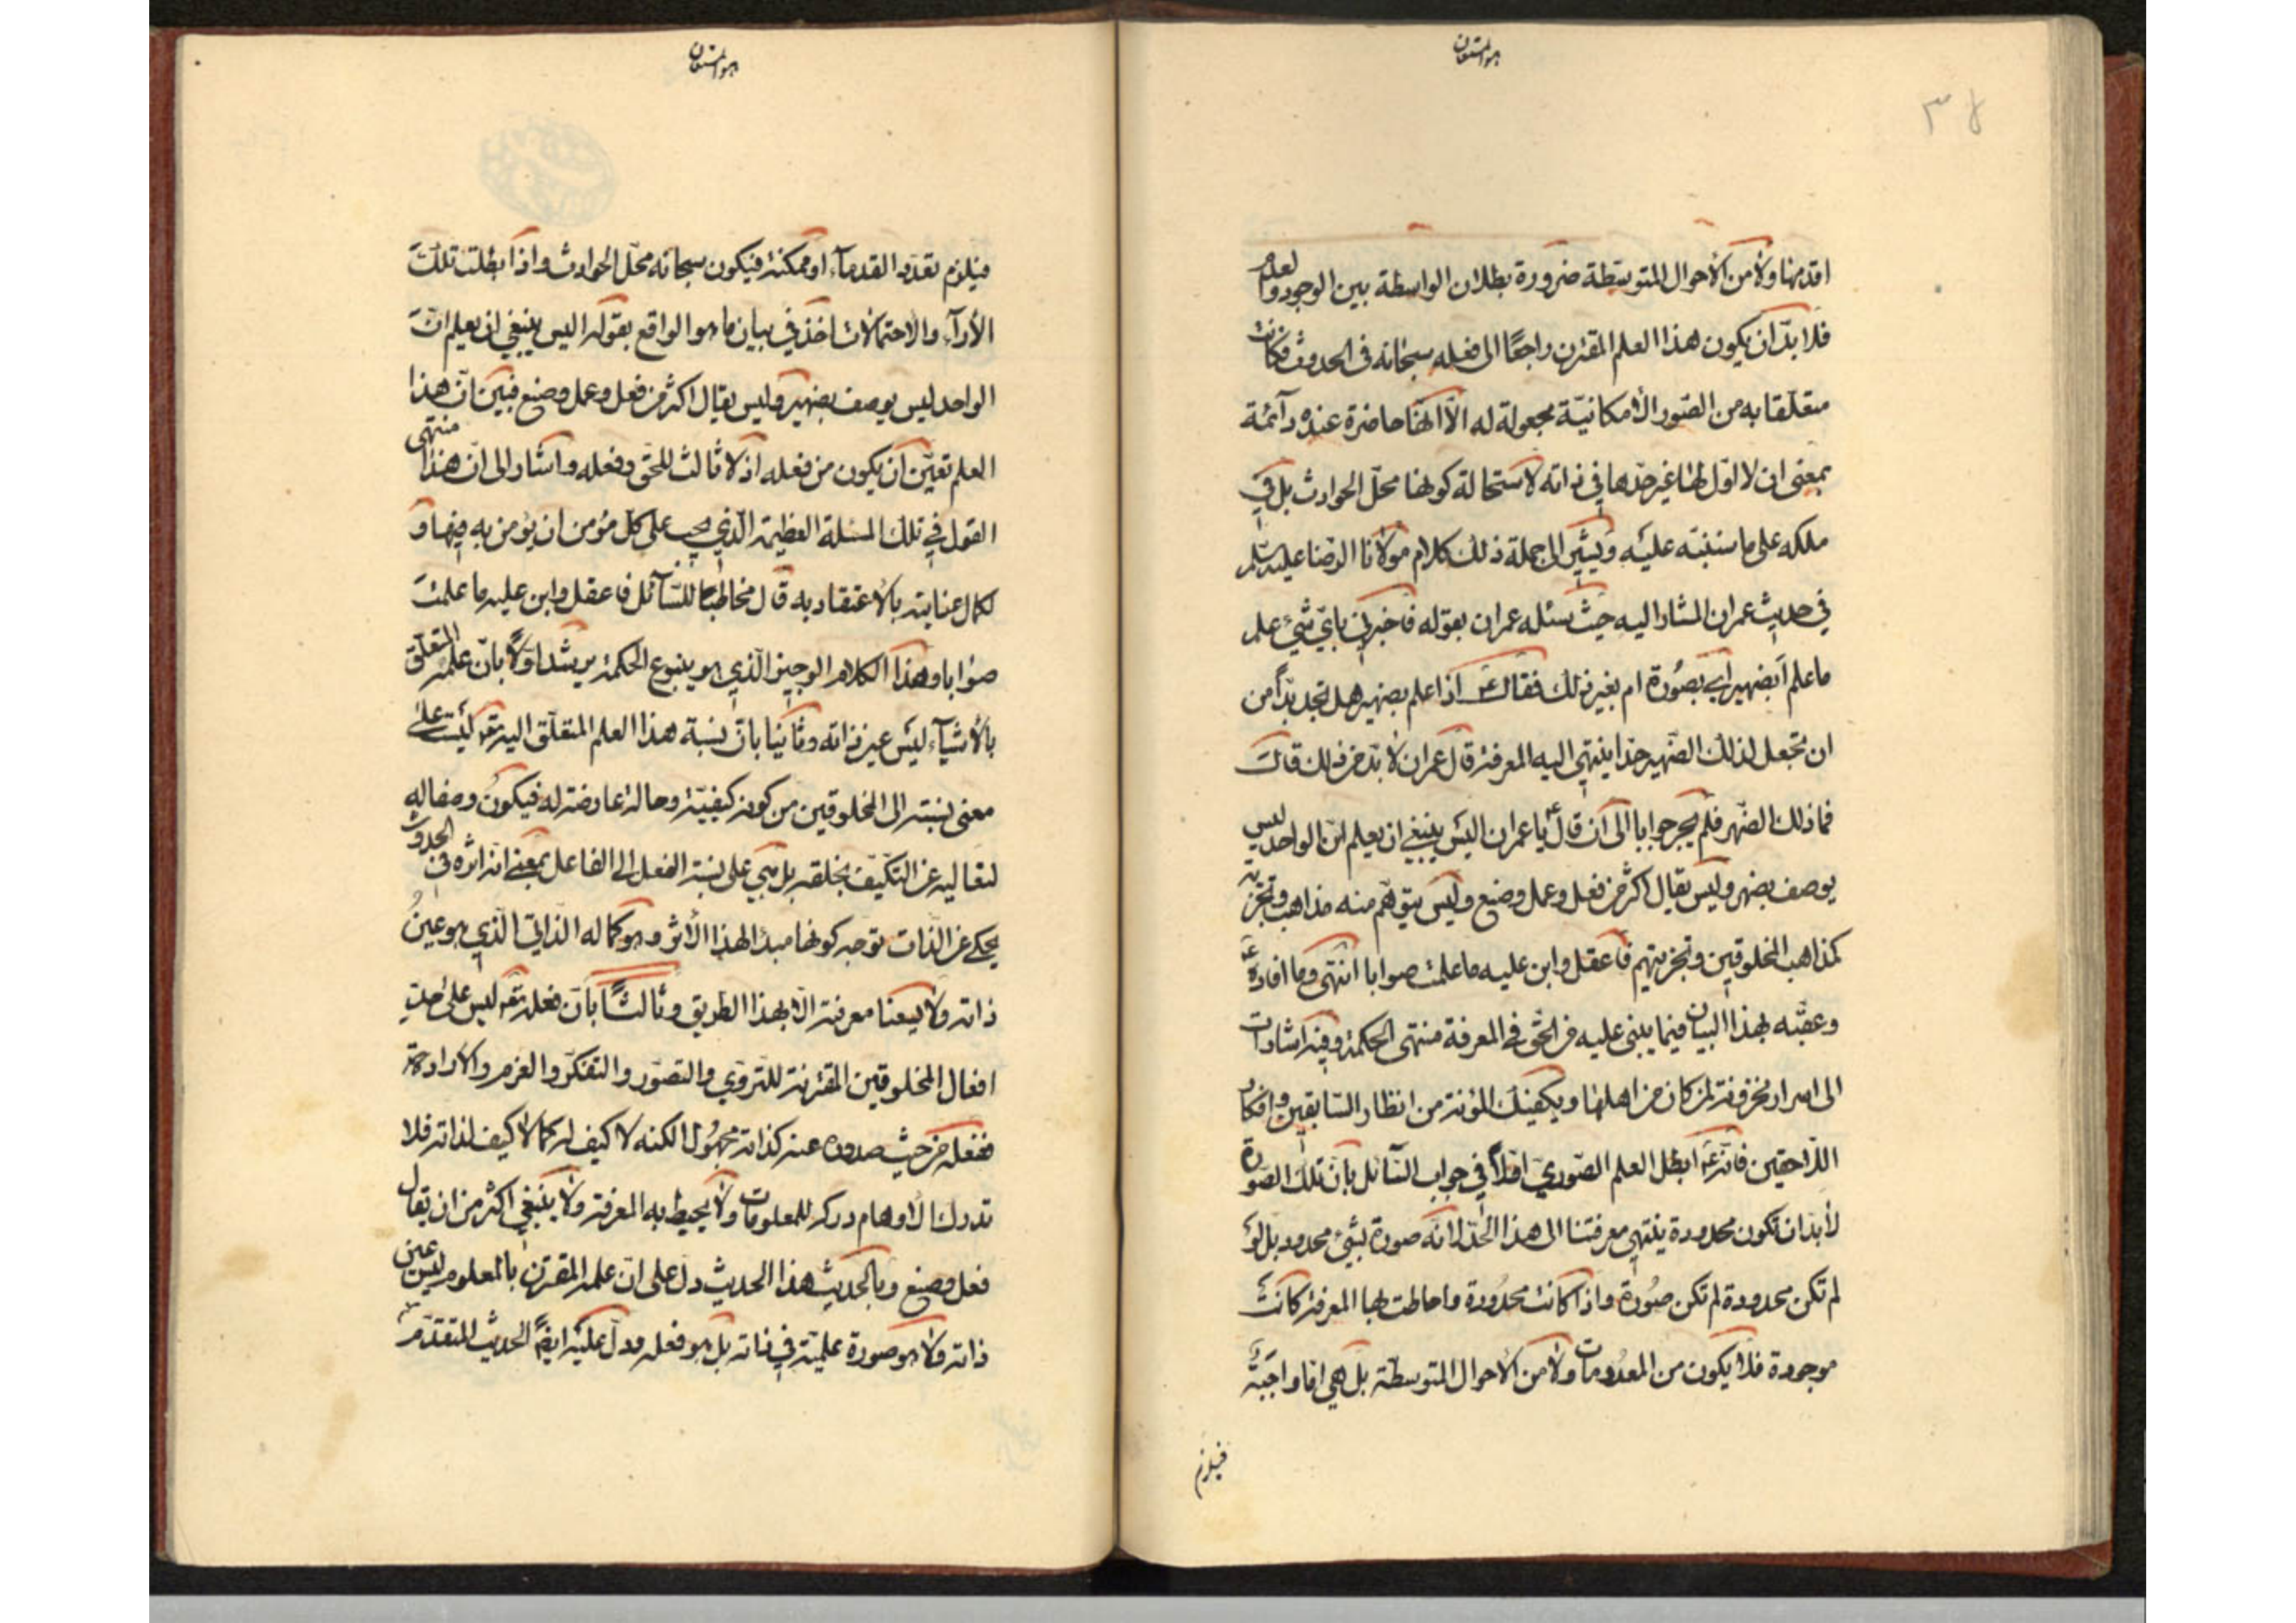 هو المستعان
٣٨
اقدمها ولا من الأحوال المتوسّطة ضرورة بطلان الواسطة بين الوجود والعدم
فلا بدّ ان يكون هذا العلم المقترن راجعًا الى فعله سبحانه فى الحدوث فكانت
متعلّقا به من الصّور الأمكانيّة مجعولة له الّا انّها حاضرة عنده دآئمة
بمعنى ان لا اوّل لها غير حدّها فى ذاته لاستحالة كونها محلّ الحوادث بل فى
ملكه على ما سننبّه عليه ويشير الى جملة ذلك كلام مولانا الرّضا عليه السّلم
في حديث عمران المشار اليه حيث سئله عمران بقوله فاخبرنى بايّ شيء علم
ما علم أبضمير اى بصُورة ام بغير ذلك فقال عم اذا علم بضمير هل تجد بدّاً من
ان تجعل لذلك الضّمير حدا ينتهي اليه المعرفة قال عمران لا بدّ من ذلك قال
فما ذلك الضّمير فلم يحر جوابا الى ان قال يا عمران اليس ينبغي ان يعلم انّ الواحد ليس
يوصف بضمير وليس يقال اكثر من فعل وعمل وصنع وليس يتوهّم منه مذاهب وتجزية
كمذاهب المخلوقين وتجزيتهم فاعقل وابن عليه ما علمت صوابا انتهى وما افاده
وعقبّه بهذا البيان فيما يبنى عليه من الحقّ في المعرفة منتهى الحكمة وفيه اشارات
الى اسرار مخزونة لمن كان من اهلها ويكفيك المؤنة من انظار السّابقين وافكار
اللّاحقين فانّه عم ابطل العلم الصّوريّ اوّلاً في جواب السّآئل بانّ تلك الصّورة
لا بدّ ان تكون محدودة ينتهى معرفتنا الى هذا الحدّ لانّه صورة لشئ محدود بل لو
لم تكن محدودة لم تكن صُورة واذا كانت محدُودة واحاطت بها المعرفة كانت
موجودة فلا يكون من المعدُومات ولا من الأحوال المتوسطة بل هي امّا واجبة
فيلزم
هو المستعان
فيلزم تعدّد القدمآء او ممكنة فيكون سبحانه محلّ الحوادث واذا بطلت تلك
الأرآء والاحتمالات اخذ في بيان ما هو الواقع بقوله اليس ينبغي ان يعلم انّ
الواحد ليس يوصف بضمير وليس يقال اكثر من فعل وعمل وصنع فبيّن انّ هذا
العلم تعيّن ان يكون من فعله اذ لا ثالث للحقّ وفعله واشار الى ان هذا منتهى
القول في تلك المسئلة العظيمة الّذي يجب على كلّ مؤمن ان يؤمن به فيها و
لكمال عنايته بالاعتقاد به قال مخاطبا للسّآئل فاعقل وابن عليه ما علمت
صوابا وهذا الكلام الوجيز الّذي هو ينبوع الحكمة يرشد اوّلاً بانّ علمه المتعلّق
بالأشيآء ليس عين ذاته وثانيا بانّ نسبة هذا العلم المتعلّق اليه تع ليست على
معنى نسبته الى المخلوقين من كونه كيفيّة وحالة عارضة له فيكون وصفا له
لتعاليه عن التّكيّف بخلقه بل هي على نسبة الفعل الى الفاعل بمعنى انه اثره فى الحدوث
يحكى عن الذّات توجه كونها مبدءا لهذا الأثر وهو كماله الذاتي الّذي هو عينُ
ذاته ولا يسعنا معرفته الّا بهذا الطريق وثالثًا بانّ فعله تع ليس على حدّ
افعال المخلوقين المقترنة للتروّي والتصوّر والتفكّر والعزم والارادة
ففعله من حيث صدوره عنه كذاته مجهُول الكنه لا كيف له كما لا كيف لذاته فلا
تدرك الاوهام دركه للمعلومات ولا يحيط به المعرفة ولا ينبغي اكثر من ان يقال
فعل وصنع وبالجملة هذا الحديث دل على انّ علمه المقترن بالمعلوم ليس عين
ذاته ولا هو صورة علميّة في ذاته بل هو فعله ودلّ عليه ايضًا الحديث المتقدّم